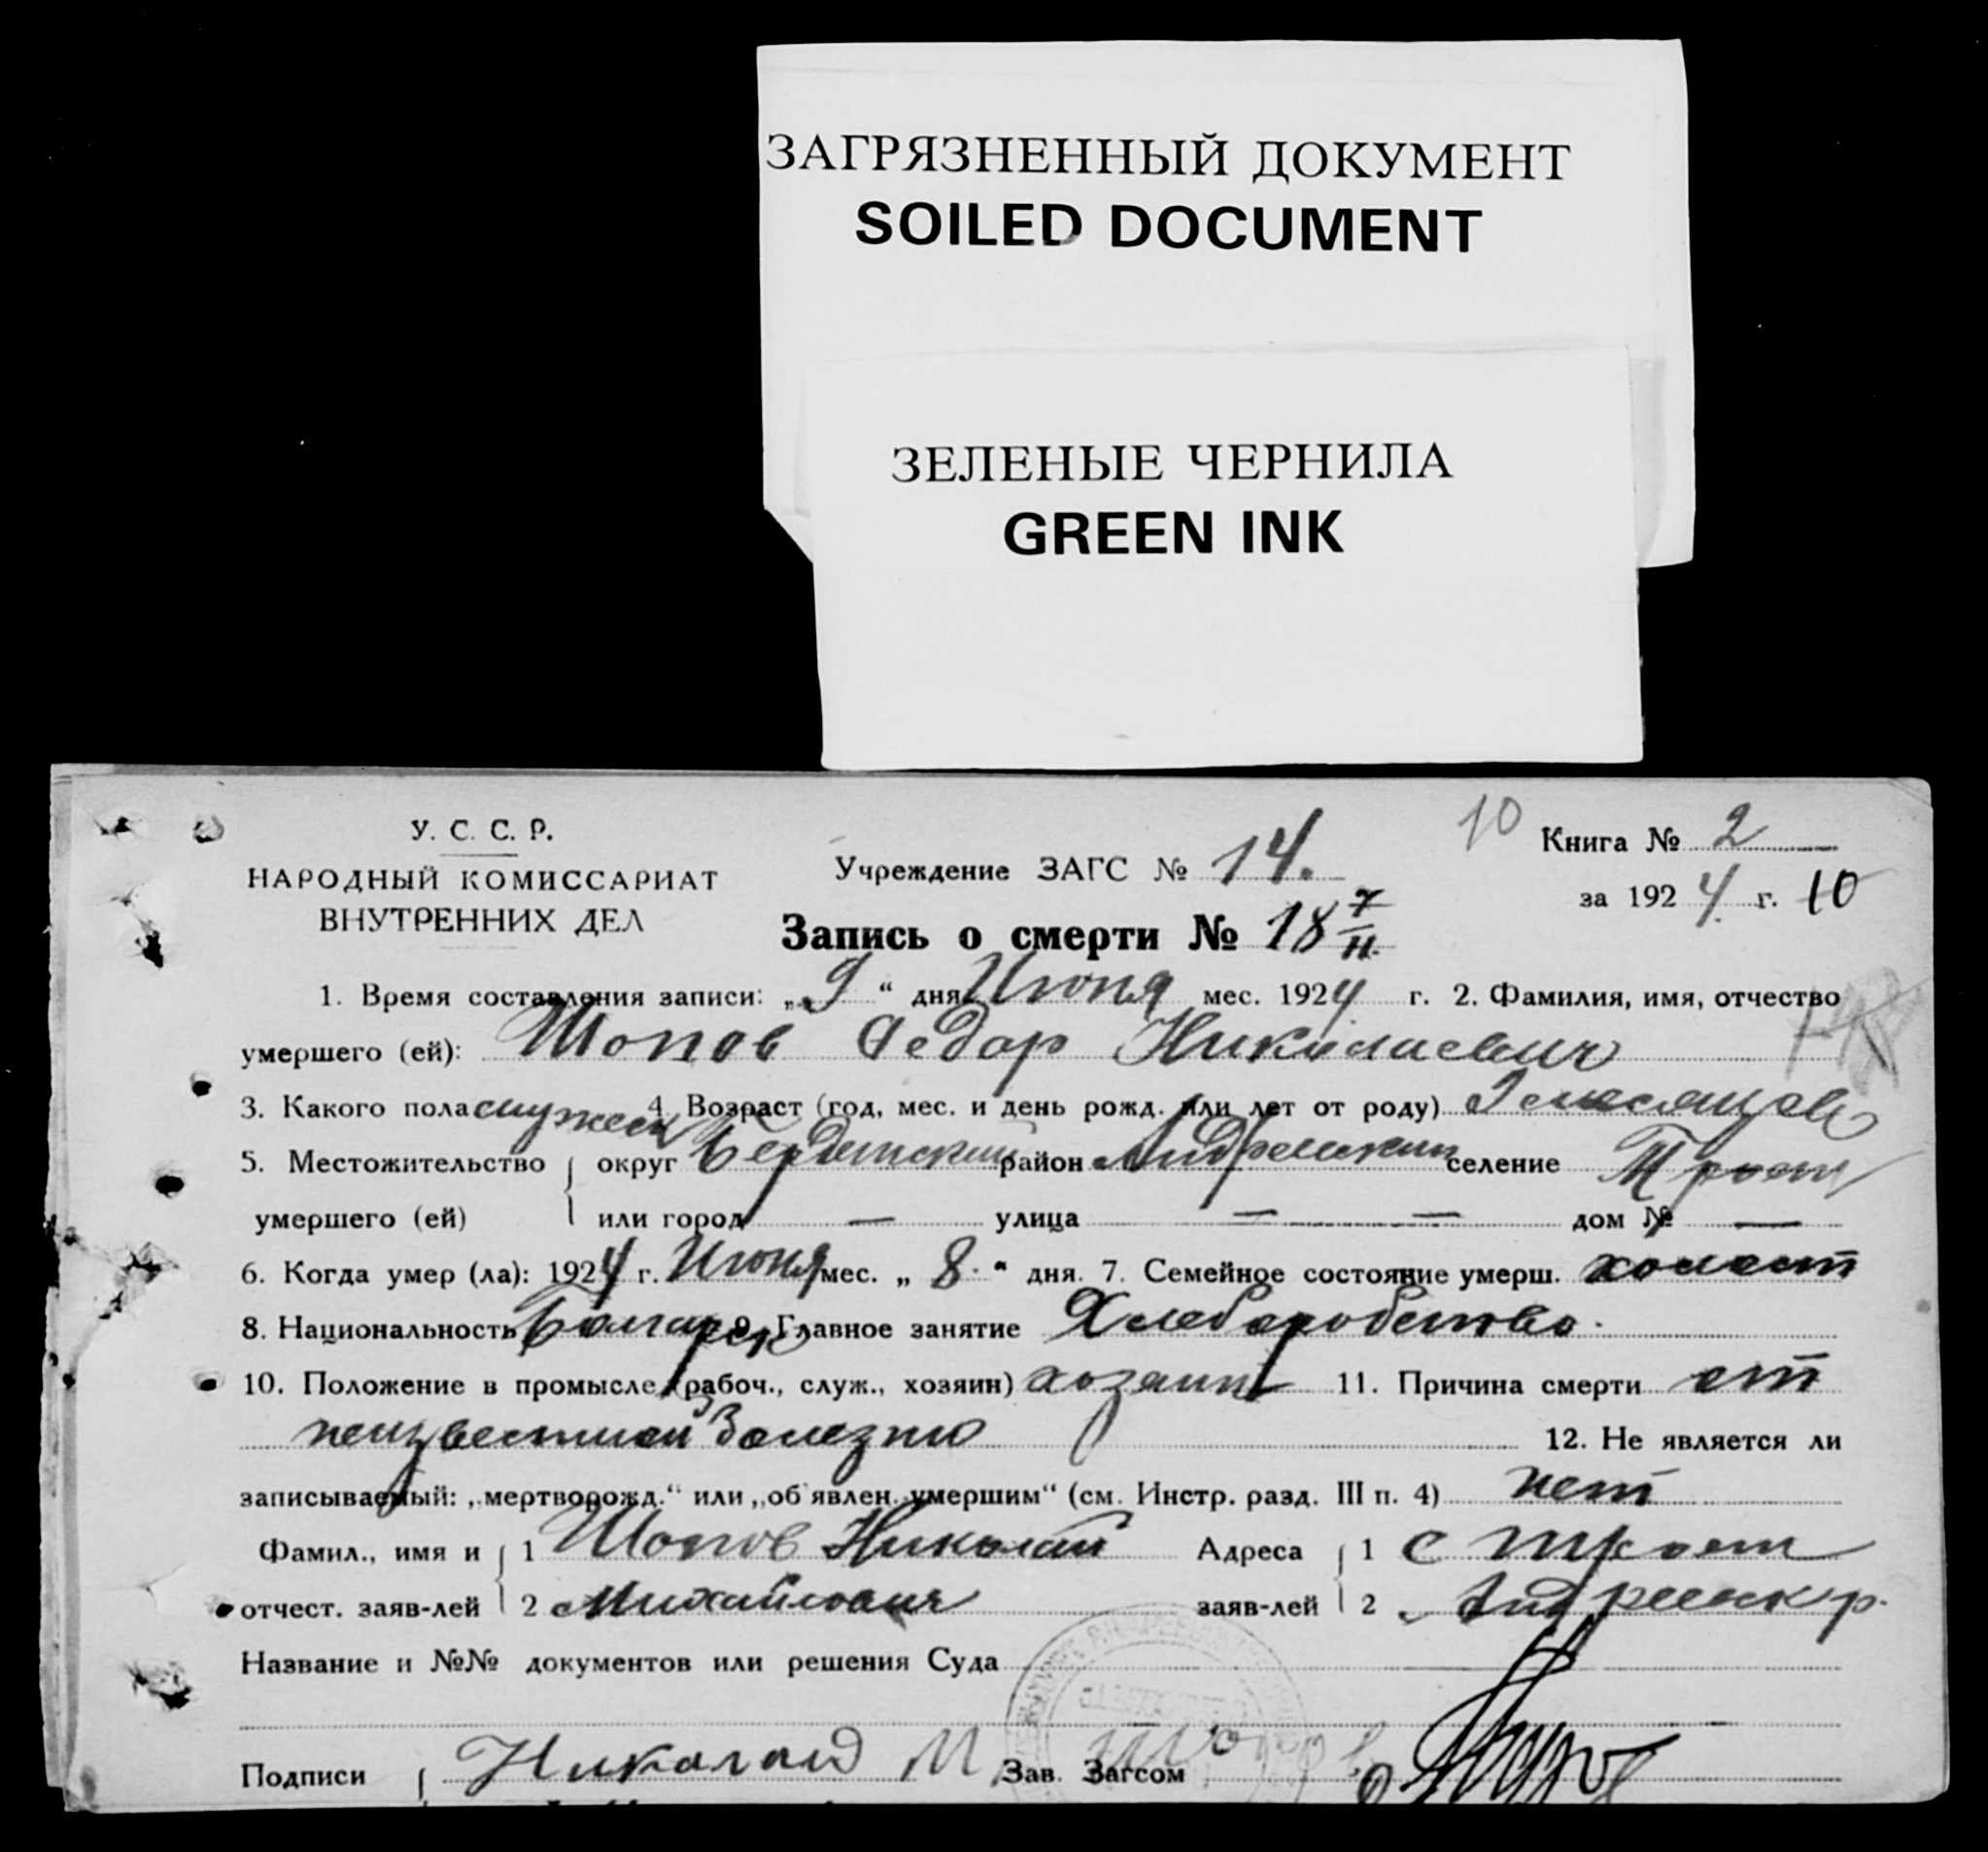 ЗАГРЯЗНЕННЫЙ ДОКУМЕНТ
SOILED DOCUMENT
ЗЕЛЕНЫЕ ЧЕРНИЛА
GREEN INK
У. С. С. Р.
НАРОДНЫЙ КОМИССАРИАТ
ВНУТРЕННИХ ДЕЛ
Учреждение ЗАГС № 14.
10 Книга № 2
за 1924 г. 10
Запись о смерти № 18 7/II.
1. Время составления записи: „9“ дня Июня мес. 1924 г. 2. Фамилия, имя, отчество
умершего (ей): Шопов Федор Николаевич
3. Какого пола мужск 4. Возраст (год, мес. и день рожд. или лет от роду) месяцев
5. Местожительство округ Бердянский район Андреевский селение Троян
умершего (ей) или город — улица — — дом № —
6. Когда умер (ла): 1924 г. Июня мес. „8.“ дня. 7. Семейное состояние умерш. холост
8. Национальность Болгарск 9. Главное занятие Хлеборобство.
10. Положение в промысле (рабоч., служ., хозяин) хозяин 11. Причина смерти от
неизвестной болезни 12. Не является ли
записываемый: „мертворожд.“ или „об'явлен. умершим“ (см. Инстр. разд. III п. 4) нет
Фамил., имя и 1 Шопов Николай Адреса 1 с Троян
отчест. заяв-лей 2 Михайлович заяв-лей 2 Андреевск р.
Название и №№ документов или решения Суда
Подписи Николай М Шопов Зав. Загсом